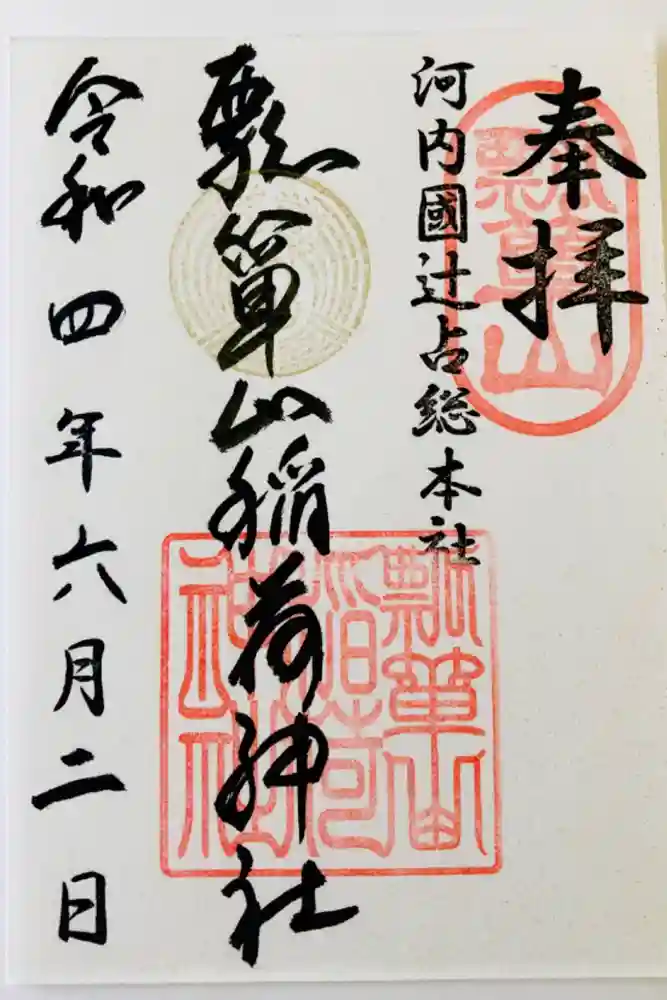 奉拝
河内國辻占総本社
瓢簞山稲荷神社
令和四年六月二日
瓢簞山
瓢簞山
稲荷
神社